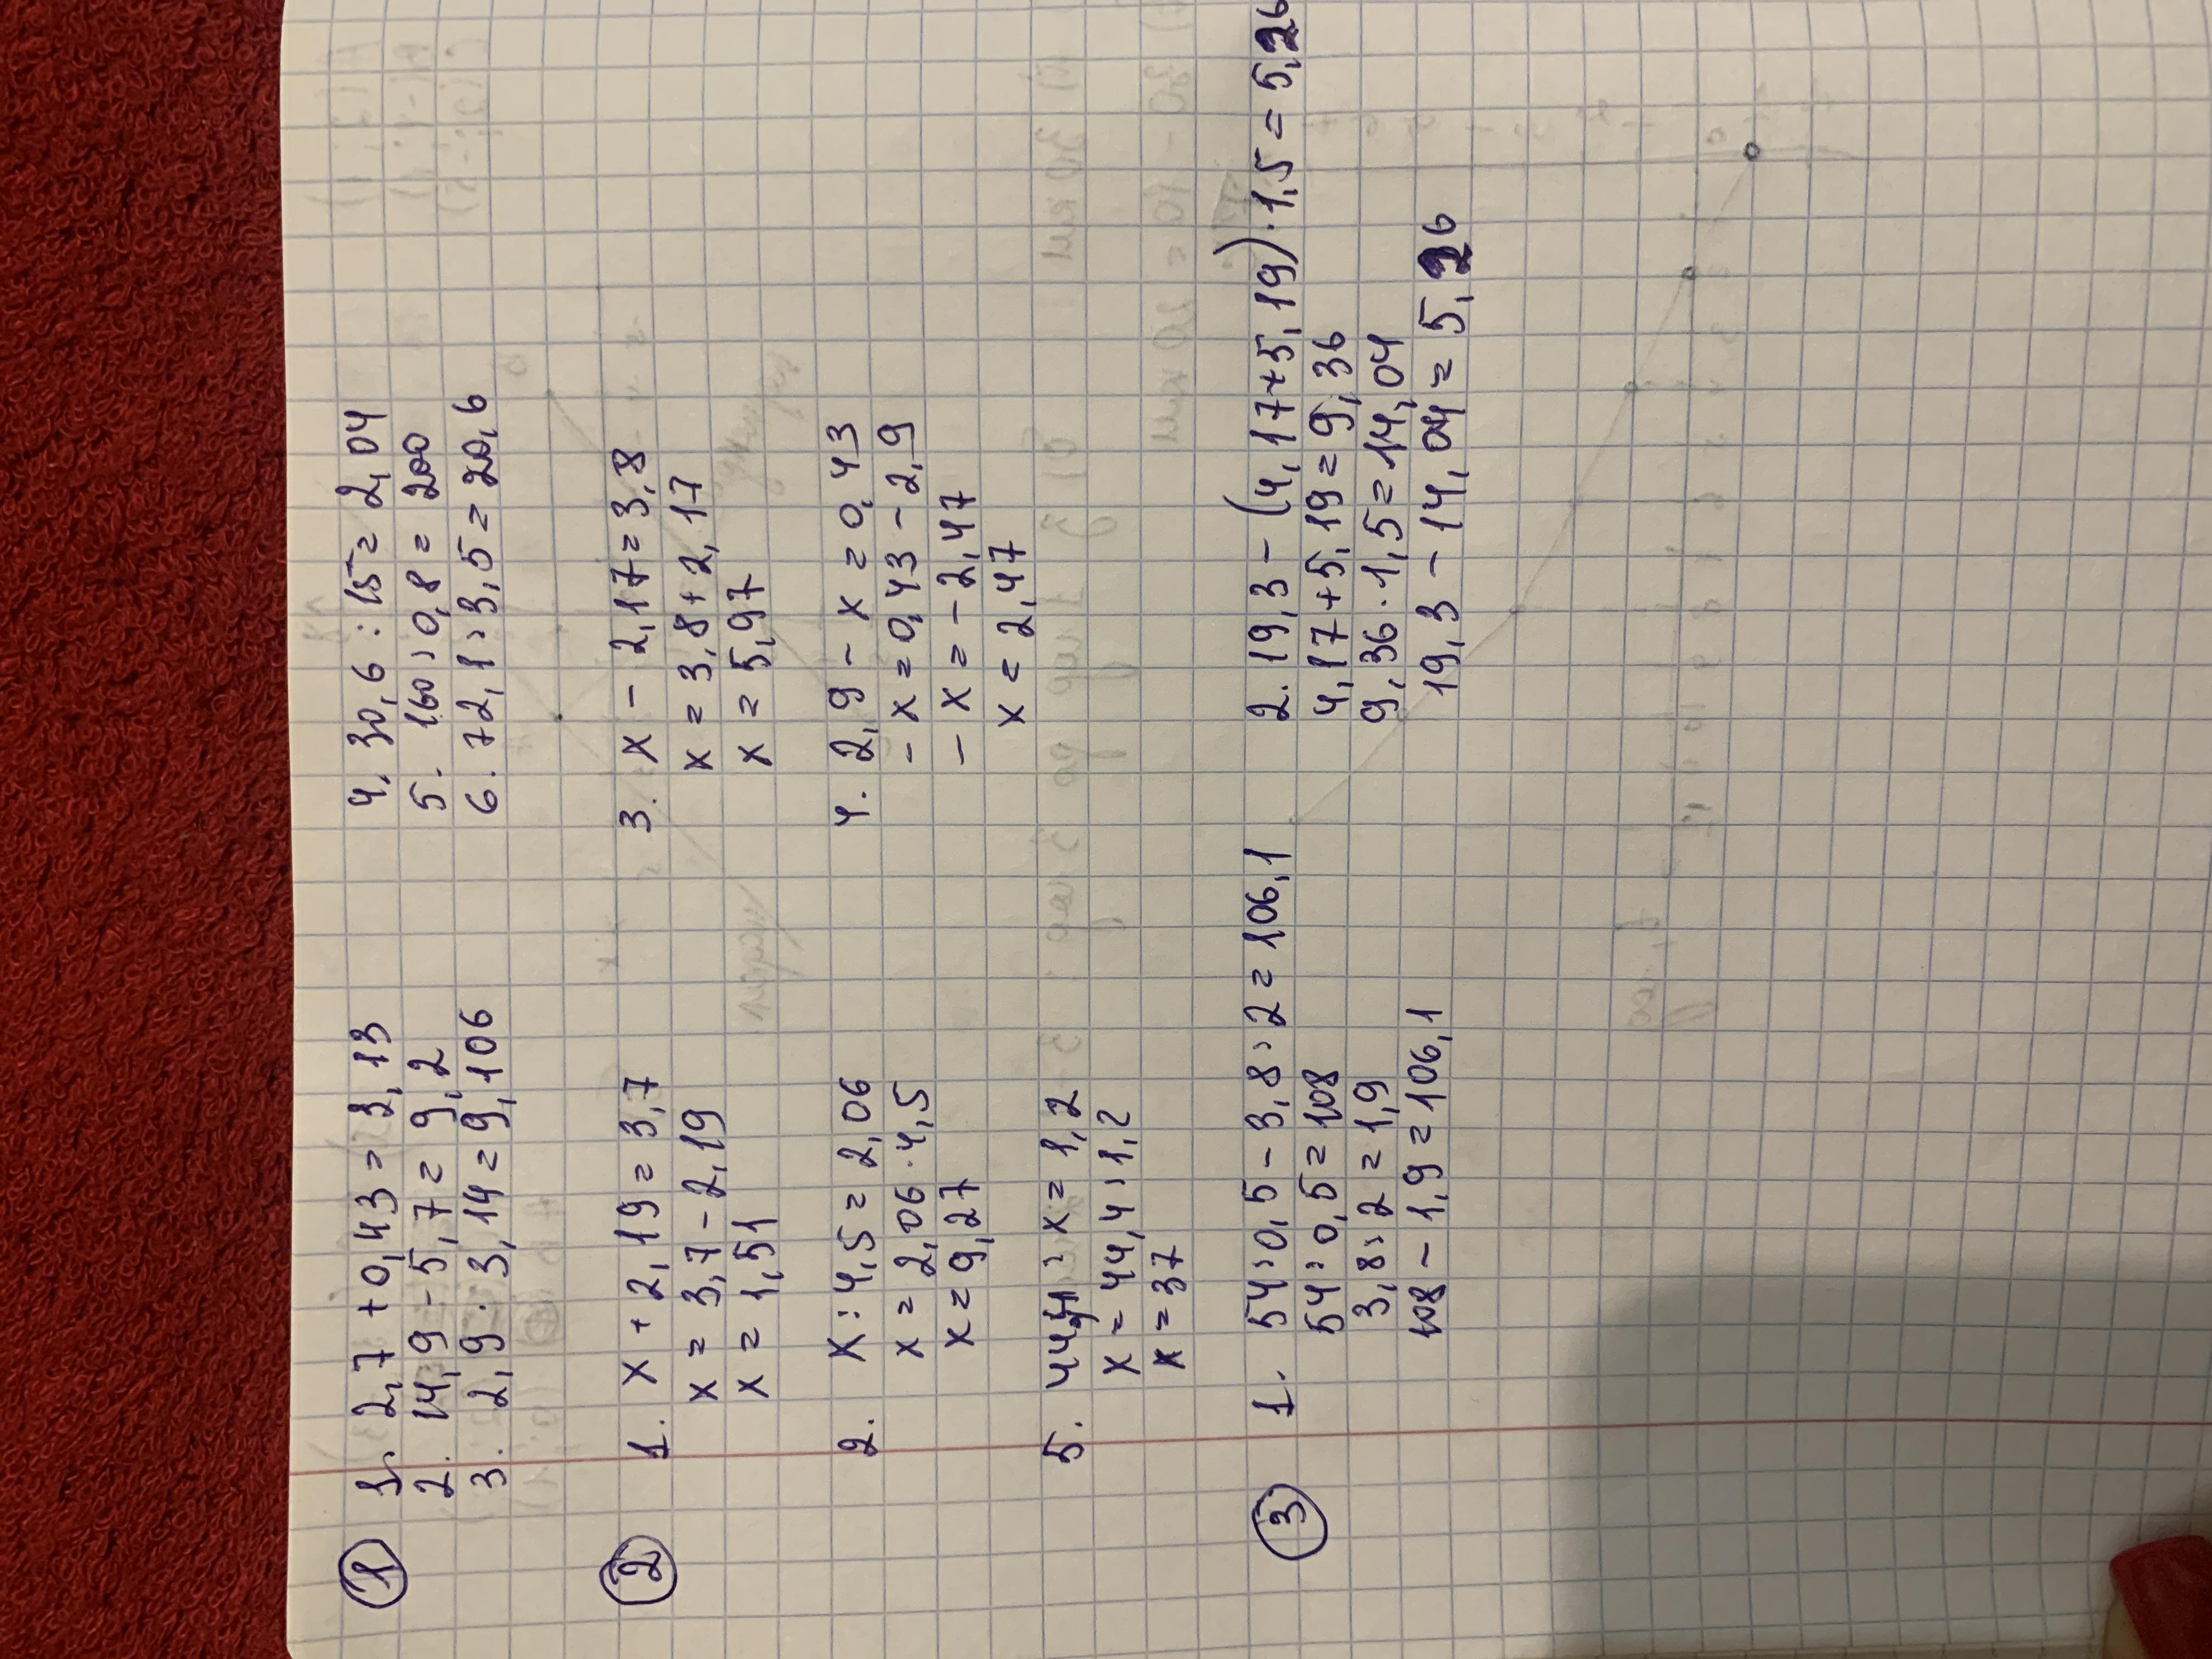 1
1. 2,7 + 0,43 = 3,13
2. 14,9 - 5,7 = 9,2
3. 2,9 · 3,14 = 9,106
4. 30,6 : 15 = 2,04
5. 160 : 0,8 = 200
6. 72,1 : 3,5 = 20,6
2
1. x + 2,19 = 3,7
x = 3,7 - 2,19
x = 1,51
2. x : 4,5 = 2,06
x = 2,06 · 4,5
x = 9,27
5. 44,4 : x = 1,2
x = 44,4 : 1,2
x = 37
3. x - 2,17 = 3,8
x = 3,8 + 2,17
x = 5,97
4. 2,9 - x = 0,43
- x = 0,43 - 2,9
- x = - 2,47
x = 2,47
3
1. 54 : 0,5 - 3,8 : 2 = 106,1
54 : 0,5 = 108
3,8 : 2 = 1,9
108 - 1,9 = 106,1
2. 19,3 - (4,17 + 5,19) · 1,5 = 5,26
4,17 + 5,19 = 9,36
9,36 · 1,5 = 14,04
19,3 - 14,04 = 5,26